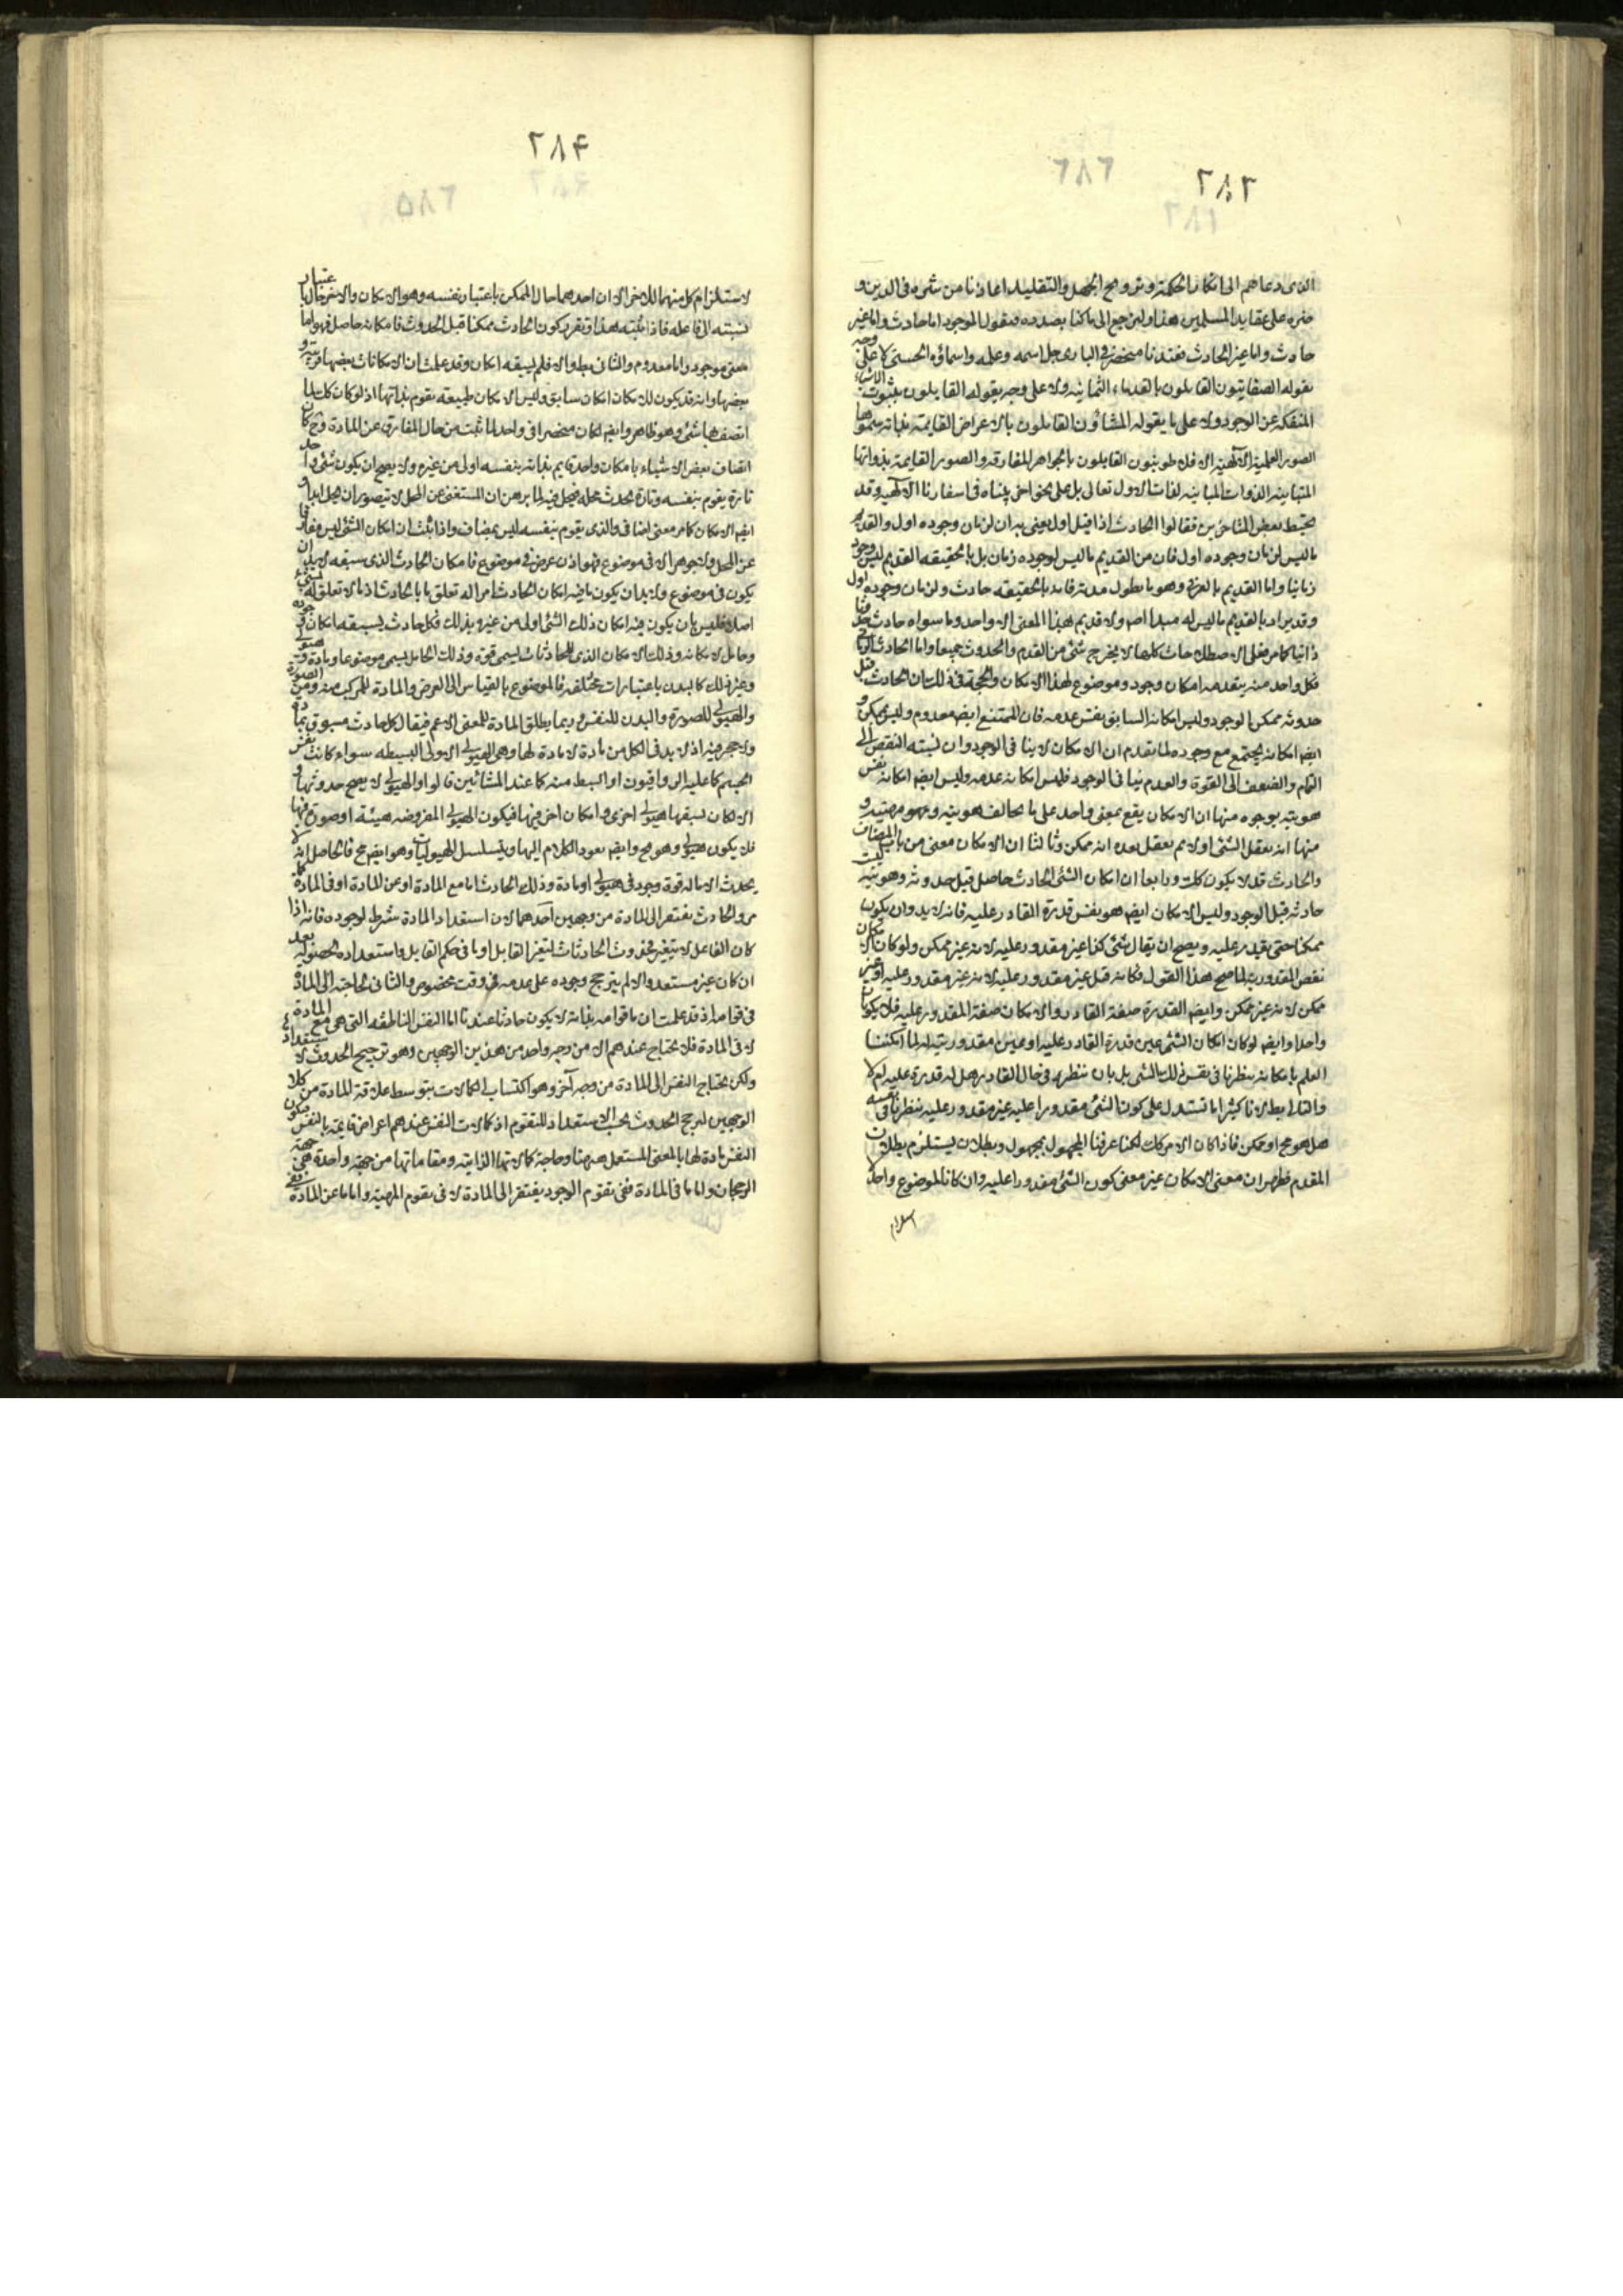 ٢٨٣
الذى دعاهم الى انكار الحكمة وترويج الجهل والتقليد اعاذنا من شره فى الدين و
ضره على عقايد المسلمين هذا ولنرجع الى ما كنا بصدده ونقول الموجود اما حادث واما غير
حادث واما غير الحادث فعندنا منحصر فى البارى جل اسمه وعلمه واسماؤه الحسنى لا على وجه
يقوله الصفاتيون القايلون بالقدماء الثمانيه ولا على وجه يقوله القايلون بثبوت الاشياء
المنفكه عن الوجود ولا على ما يقوله المشاؤن القايلون بالاعراض القايمة بذاته سموها
الصور العلمية الالهية الافلاطونيون القايلون بالجواهر المفارقه والصور القايمة بذواتها
المتباينه الذوات المباينه لذات الاول تعالى بل على نحو اخر بيناه فى اسفارنا الالهيه وقد
يختبط بعض المتاخرين فقالوا الحادث اذا قيل اول يعنى به ان لزمان وجوده اول والقديم
ما ليس لزمان وجوده اول فان من القديم ما ليس لوجوده زمان بل بالحقيقه القديم ليس وجوده
زمانيا واما القديم بالعرف وهو ما يطول مدته فانه بالحقيقه حادث ولزمان وجوده اول
وقد يراد بالقديم ما ليس له مبدأ اصلا ولا قديم بهذا المعنى الا واحد وما سواه حادث حدوثا
ذاتيا كامر فعلى الاصطلاحات كلها لا يخرج شئ من القدم والحدوث جميعا واما الحادث الزمانى
فكل واحد منه يتقدمه امكان وجود وموضوع لهذا الامكان والحجة فى ذلك ان الحادث قبل
حدوثه ممكن الوجود وليس امكانه السابق نفس عدمه فان للممتنع ايضا معدوم وليس بممكن و
ايضا امكانه يجتمع مع وجوده لما تقدم ان الامكان لا ينا فى الوجود وان نسبته النقص الى
التمام والضعف الى القوة والعدم ينافى الوجود فليس امكانه عدمه وليس ايضا امكانه نفس
هويته بوجوه منها ان الامكان يقع بمعنى واحد على ما يخالف هويته ومهيته و
منها انه يعقل الشئ اولا ثم يعقل بعده انه ممكن وثالثا ان الامكان معنى من باب المضاف
والحادث قد لا يكون كك ورابعا ان امكان الشئ الحادث حاصل قبل حدوثه وهويته ليست
حادثه قبل الوجود وليس الامكان ايضا هو نفس قدرة القادر عليه فانه لا بد وان يكون
ممكنا حتى يقدر عليه ويصح ان يقال شئ كذا غير مقدور عليه لانه غير ممكن ولو كان الامكان
نفس المقدورية لما صح هذا القول فكانه قيل غير مقدور عليه لانه غير مقدور عليه او غير
ممكن لانه غير ممكن وايضا القدرة صفة القادر والامكان صفة المقدور عليه فلا يكونا
واحدا وايضا لو كان امكان الشئ عين قدرة القادر عليه او عين مقدوريته له لما امكننا
العلم بامكانه بنظرنا فى نفس ذلك الشئ بل بان ننظر فى حال القادر هل له قدرة عليه ام لا
والتالى بط لانا كثيرا ما نستدل على كون الشئ مقدورا عليه غير مقدور عليه بنظرنا فى نفسه
هل هو مح او ممكن فاذا كان الامر كك لكنا عرفنا المجهول بمجهول وبطلان يستلزم بطلان
المقدم فظهر ان معنى الامكان غير معنى كون الشئ مقدورا عليه وان كانا لموضوع واحد لا
٢٨۴
لاستلزام كل منهما للاخر الا ان احدهما حال الممكن باعتبار نفسه وهو الامكان والاخر حال باعتبار
نسبته الى فاعله فاذا ثبت هذا وتقرر كون الحادث ممكنا قبل الحدوث فامكانه حاصل فهو اما
معنى موجود واما معدوم والثانى بط والا فلم يسبقه امكان وقد علمت ان الامكانات بعضها قريبة و
بعضها وانه قد يكون للامكان امكان سابق وليس الامكان طبيعة يقوم بذاتها اذ لو كان كك لما
اتصف بها شئ وهو ظاهر وايضا لكان منحصرا فى واحد لما ثبت من حال المفارق عن المادة وح كان
اتصاف بعض الاشياء بامكان واحد قايم بذاته بنفسه اولى من غيره ولا يصح ان يكون شئ واحد
تارة يقوم بنفسه وتارة يحدث محله فيحل فيه لما برهن ان المستغنى عن المحل لا يتصور ان يحل ابدا و
ايضا الامكان كامر معنى اضافى والذى يقوم بنفسه ليس بمضاف واذا ثبت ان امكان الشئ ليس مفارقا
عن المحل ولا جوهرا لا فى موضوع فهو اذن عرض فى موضوع فامكان الحادث الذى سبقه لا بد ان
يكون فى موضوع ولا بد ان يكون ما فيه امكان الحادث امرا له تعلق ما بالحادث اذ ما لا تعلق له بشئ
اصلا فليس بان يكون فيه امكان ذلك الشئ اولى من غيره وبذلك فكل حادث يسبقه امكان وجوده
وحامل لامكانه وذلك الامكان الذى للحادثات يسمى قوة وذلك الحامل يسمى موضوعا ومادة وهيولى
وغير ذلك كالبدن باعتبارات مختلفه فالموضوع بالقياس الى العرض والمادة للمركب منه ومن الصورة
والهيولى للصورة والبدن للنفس وربما يطلق المادة للمعنى الاعم فيقال كل حادث مسبوق بمادة
ولا حجر فيه اذ لا بد فى الكل من مادة لا مادة لها وهى الهيولى الاولى البسيطه سواء كانت نفس
الجسم كما عليه الرواقيون او ابسط منه كما عند المشائين قالوا والهيولى لا يصح حدوثها و
الا لكان يسبقها هيولى اخرى وامكان اخر فيها فيكون الهيولى المفروضه هيئة او صورة فيها
فلا يكون هيولى وهو مح وايضا يعود الكلام اليها ويتسلسل الهيوليات وهو ايضا مح فالحاصل انه لا
يحدث الا ما له قوة وجود فى هيولى او مادة وذلك الحادث اما مع المادة او عن المادة او فى المادة كما
مر والحادث يفتقر الى المادة من وجهين احدهما لان استعداد المادة شرط لوجوده فانه اذا
كان الفاعل لا يتغير فحدوث الحادثات لتغير القابل او ما فى حكم القابل واستعداده لحصوله بعد
ان كان غير مستعد والا لم يترجح وجوده على عدمه فى وقت مخصوص والثانى لحاجته الى المادة
فى قوامه اذ قد علمت ان ما قوامه بذاته لا يكون حادثا عندنا اما النفس الناطقه التى هى مع المادة
لا فى المادة فلا يحتاج عندهم الا من وجه واحد من هذين الوجهين وهو ترجيح الحدوث لا
ولكن يحتاج النفس الى المادة من وجه آخر وهو اكتساب الكمالات بتوسط علاقة المادة من كلا
الوجهين لترجح الحدوث بحسب الاستعداد للتقوم اذ كمالات النفس عندهم اعراض قايمة بالنفس فيكون
النفس مادة لها بالمعنى المستعمل ههنا وحاجة كمالاتها الذاتيه ومقاماتها من جهة واحدة هى جهة
الرجحان واما ما فى المادة ففى تقوم الوجود يفتقر الى المادة لا فى تقوم المهية واما ما عن المادة